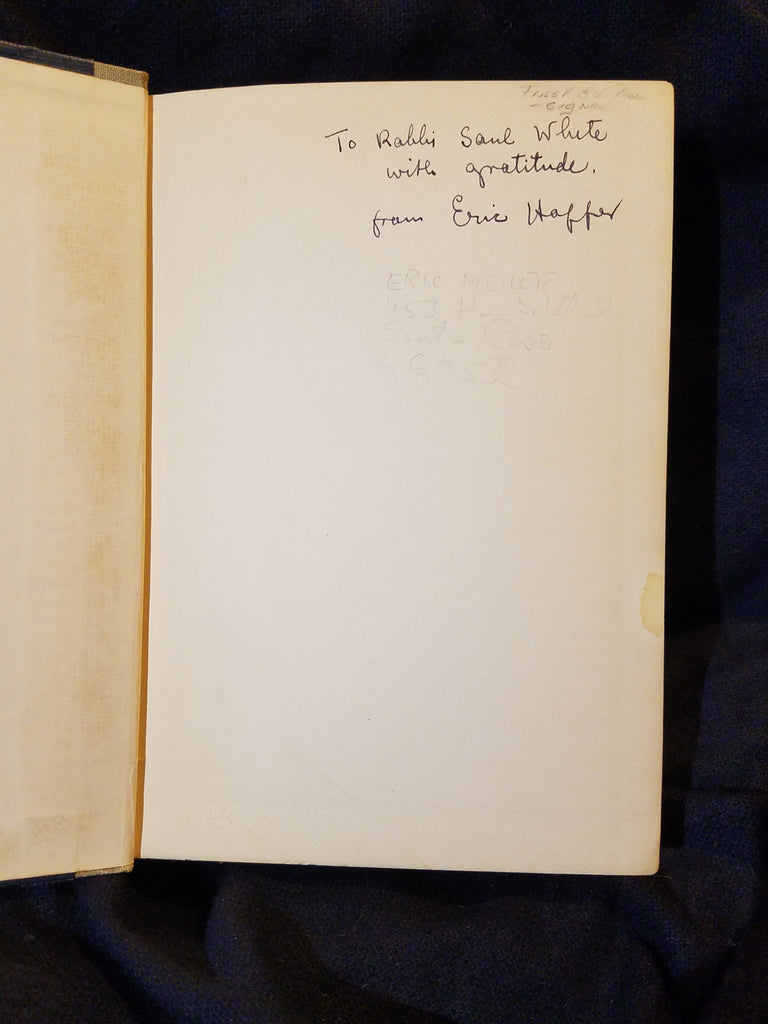 First Edition
- Signed
To Rabbi Saul White
with gratitude.
from Eric Hoffer
ERIC
1153
Santa Rosa